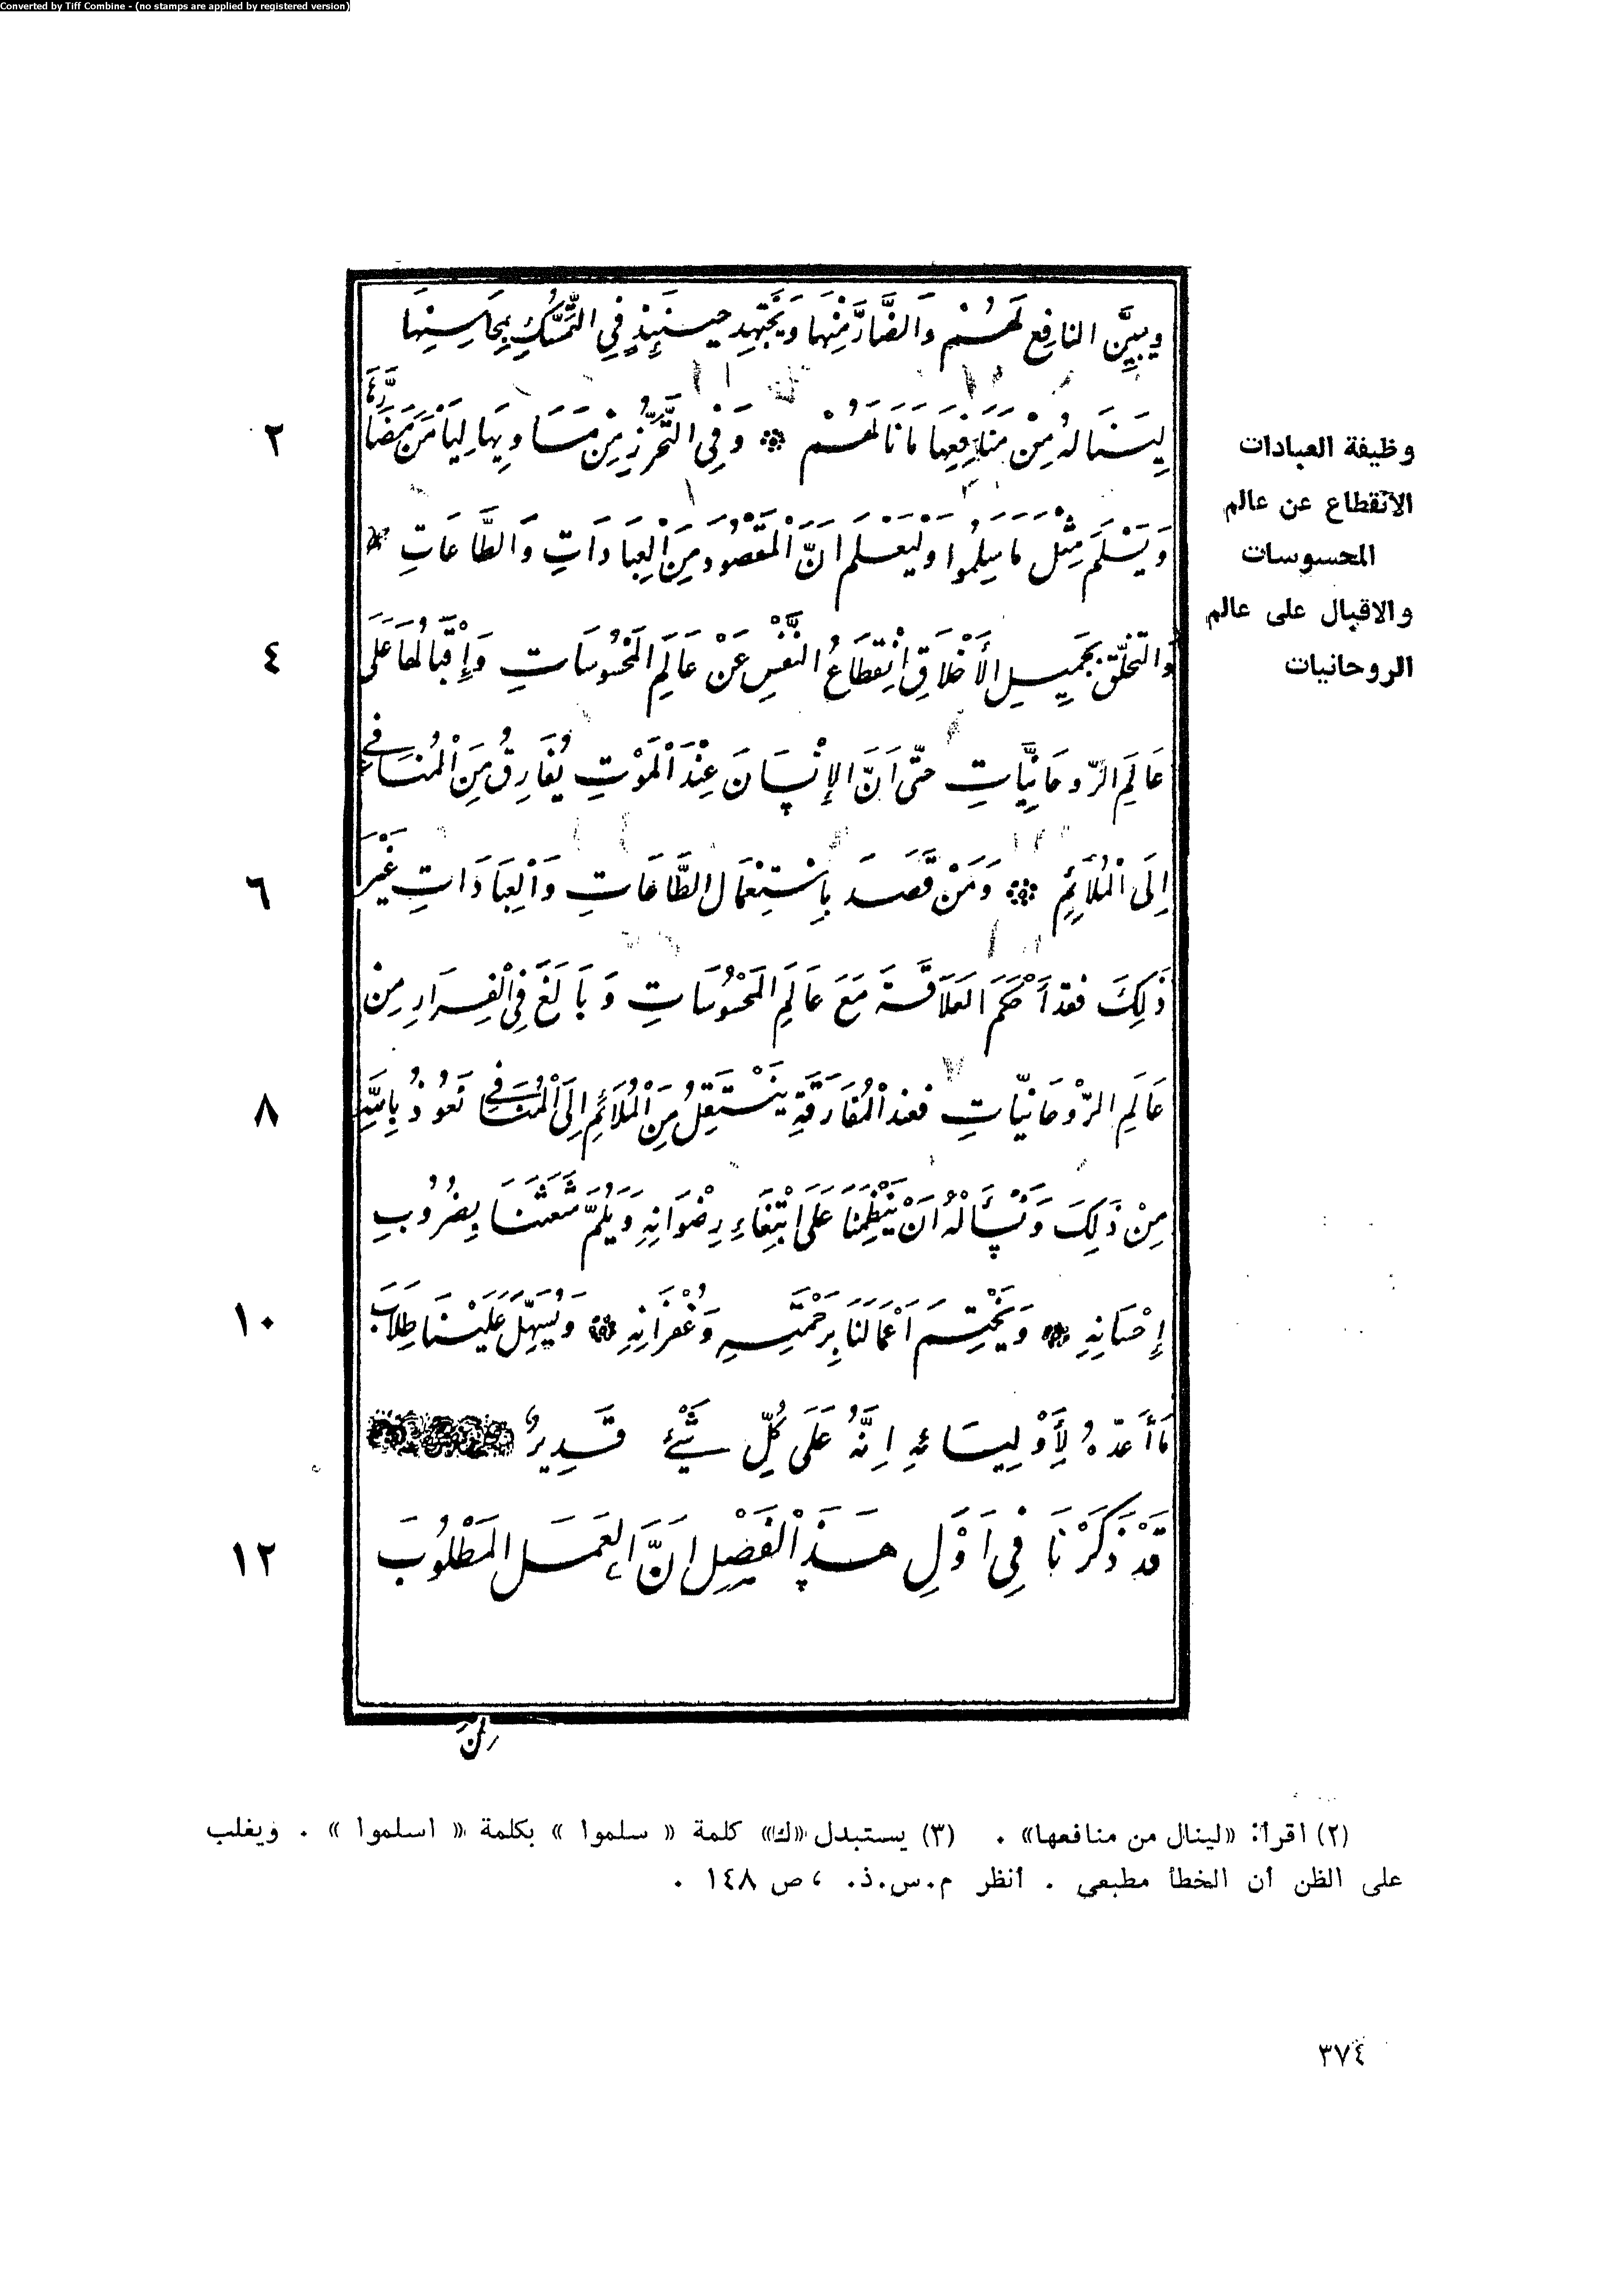 Converted by Tiff Combine - (no stamps are applied by registered version)
ويبيَّن النافِعِ لَهُمْ وَالضَّارَّ مِنْهَا وَيَجْتَهِد حِينَئِذٍ فِي التَّمَسُّكِ بِمَحَاسِنِهَا
لِيَنَالهُ مِنْ مَنَافِعِهَا مَا نَالَهُمْ ۞ وَفِي التَّحَرُّزِ مِنْ مَسَاوِيهَا لِيَأْمَنَ مَضَارَّهَا
٢
وَيَسْلَمَ مِثْلَ مَا سَلِمُوا وَلْيَعْلَمَ انَّ الْمَقْصُودَ مِنَ الْعِبَادَاتِ وَالطَّاعَاتِ ۞
وَالتّخلّق بِجَمِيلِ الأَخْلَاقِ انْقِطَاعُ النَّفْسِ عَنْ عَالَمِ الْمَحْسُوسَاتِ وَإِقْبَالُهَا عَلَى
٤
عَالَمِ الرّوحَانِيَّاتِ حتّى اَنَّ الإِنْسَانَ عِنْدَ الْمَوْتِ يُفَارِقُ مِنَ الْمُنَافِي
اِلَى الْمُلَائِمِ ۞ وَمَنْ قَصَدَ بِاسْتِعْمَالِ الطَّاعَاتِ وَالْعِبَادَاتِ غَيْرَ
٦
ذَلِكَ فقد اَحْكَمَ العَلَاقَةَ مَعَ عَالَمِ الْمَحْسُوسَاتِ وَبَالَغَ فِي الْفِرَارِ مِنْ
عَالَمِ الرُّوحَانِيّاتِ فعند الْمُفَارَقَةِ يَنْتَقِلُ مِنَ الْمُلَائِمِ اِلَى الْمُنَافِي نَعُوذُ بِاللهِ
٨
مِنْ ذَلِكَ وَنَسْأَلُهُ اَنْ يَنْظِمَنَا عَلَى ابْتِغَاءِ رِضْوَانِهِ وَيَلُمَّ شَعَثَنَا بِضُرُوبِ
إِحْسَانِهِ ۞ وَيَخْتِمَ اَعْمَالَنَا بِرَحْمَتِهِ وَغُفْرَانِهِ ۞ وَيُسَهِّلَ عَلَيْنَا طِلَابَ
١٠
مَا أَعَدّهُ لِأَوْلِيَائهِ اِنَّهُ عَلَى كُلِّ شَيْئٍ قَدِيرٌ
قَدْ ذَكَرْنَا فِي اَوَّلِ هَذَا الْفَصْلِ اَنَّ الْعَمَلَ الْمَطْلُوبَ
١٢
وظيفة العبادات
الانقطاع عن عالم
المحسوسات
والاقبال على عالم
الروحانيات
(٢) اقرأ: «لينال من منافعها» . (٣) يستبدل «ك» كلمة « سلموا » بكلمة « اسلموا » . ويغلب
على الظن أن الخطأ مطبعى . أنظر م.س.ذ. ، ص ١٤٨ .
٣٧٤